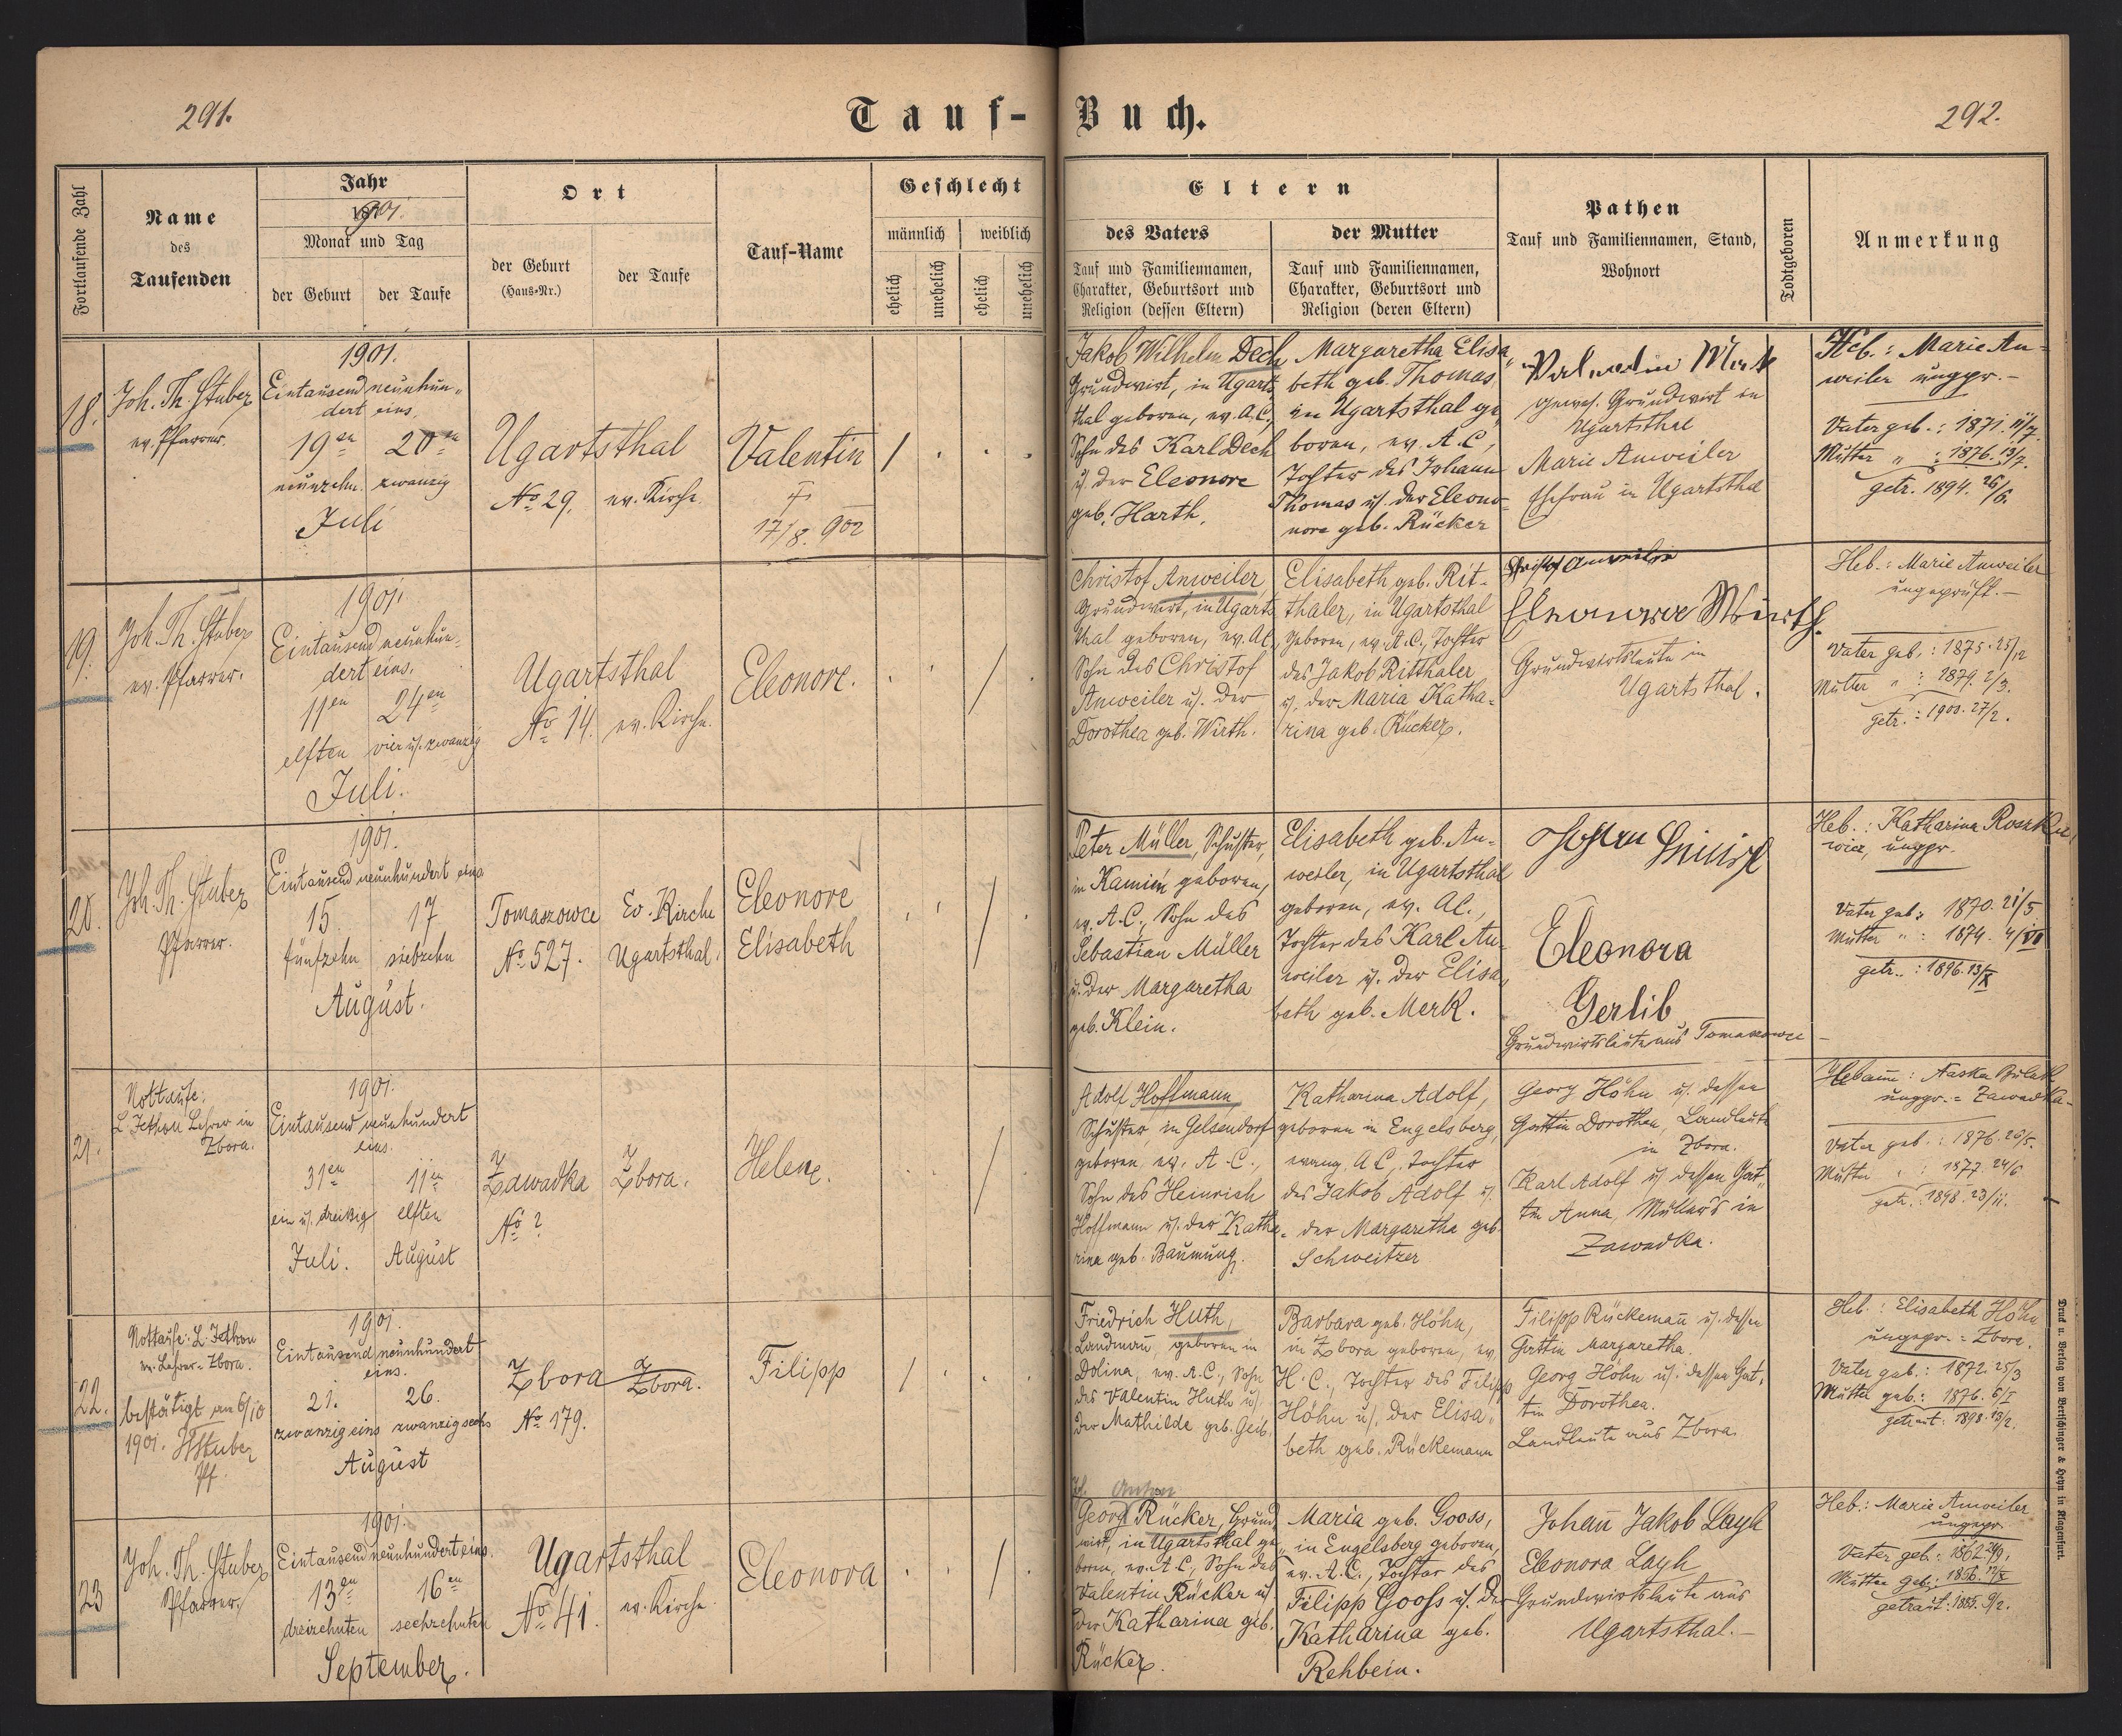 291.
Tauf-Buch.
292.
Fortlaufende Zahl
Name
des
Taufenden
Jahr
1901.
Monat und Tag
der Geburt
der Taufe
Ort
der Geburt
(Haus-Nr.)
der Taufe
Tauf-Name
Geschlecht
männlich
weiblich
ehelich
unehelich
ehelich
unehelich
Eltern
des Vaters
Tauf und Familiennamen,
Charakter, Geburtsort und
Religion (dessen Eltern)
der Mutter
Tauf und Familiennamen,
Charakter, Geburtsort und
Religion (deren Eltern)
Pathen
Tauf und Familiennamen, Stand,
Wohnort
Todtgeboren
Anmerkung
18.
Joh. Th. Stuber
ev. Pfarrer.
1901.
Eintausend neunhun-
dert eins.
19en 20en
neunzehn. zwanzig
Juli
Ugartsthal
No 29. ev. Kirche.
Valentin
†
17/8. 902
/ . . .
Jakob Wilhelm Dech
Grundwirt, in Ugarts-
thal geboren, ev. A.C.,
Sohn des Karl Dech
u. der Eleonore
geb. Harth.
Margaretha Elisa-
beth geb. Thomas
in Ugartsthal ge-
boren, ev. A.C,
Tochter des Johann
Thomas u. der Eleono-
nore geb. Rücker
gewes. Grundwirt in
Ugartsthal
Marie Anweiler
Ehefrau in Ugartsthal
Heb.: Marie An-
weiler ungpr.-
Vater geb.: 1871. 11/7.
Mutter " : 1876. 13/7.
getr. 1894. 26/6.
19.
Joh. Th. Stuber
ev. Pfarrer.
1901.
Eintausend neunhun-
dert eins.
11en 24en
elften vier u. zwanzig
Juli.
Ugartsthal
No 14. ev. Kirche.
Eleonore.
. . /
Christof Anweiler,
Grundwirt, in Ugarts-
thal geboren, ev. AC,
Sohn des Christof
Anweiler u. der
Dorothea geb. Wirth.
Elisabeth geb. Rit-
thaler, in Ugartsthal
geboren, ev. A.C., Tochter
des Jakob Ritthaler
u. der Maria Katha-
rina geb. Rücker.
Christof Anweiler
Eleonore Wirth.
Grundwirtsleute in
Ugartsthal.
Heb.: Marie Anweiler
ungeprüft.-
Vater geb.: 1875. 25/12
Mutter " : 1879. 2/3.
getr.: 1900. 27/2.
20.
Joh. Th. Stuber
Pfarrer.
1901.
Eintausend neunhundert eins
15. 17
fünfzehn siebzehn
August.
Tomaszowce Ev. Kirche
No 527. Ugartsthal.
Eleonore
Elisabeth
. . / .
Peter Müller, Schuster,
in Kamień geboren,
ev. A.C., Sohn des
Sebastian Müller
u. der Margaretha
geb. Klein.
Elisabeth geb. An-
weiler, in Ugartsthal
geboren, ev. AC.,
Tochter des Karl An-
weiler u. der Elisa-
beth geb. Merk.
Eleonora
Gerlib
Grundwirtsleute aus Tomaszowce
Heb.: Katharina Roszke-
wicz, ungpr.
Vater geb: 1870. 21/5
Mutter " : 1874. 4/VII
getr.: 1896. 13/X
21.
Nottaufe:
L. Jethon Lehrer in
Zbora.
1901.
Eintausend neunhundert
eins.
31en 11en
ein u. dreißig elften
Juli. August
Zawadka Zbora.
No ?
Helene.
. . /
Adolf Hoffmann,
Schuster, in Gelsendorf
geboren, ev. A.C.,
Sohn des Heinrich
Hoffmann u. der Katha-
rina geb. Baumung.
Katharina Adolf,
geboren in Engelsberg,
evang. A C., Tochter
des Jakob Adolf u.
der Margaretha geb.
Schweitzer
Georg Höhn u. dessen
Gattin Dorothea, Landleute
in Zbora.
Karl Adolf u. dessen Gat-
tin Anna, Müllers in
Zawadka.
Hebame: Naska
ungpr. = Zawadka-
Vater geb.: 1876. 26/5.
Mutter " : 1877. 24/6
getr.: 1898. 23/11.
22.
Nottaufe: L. Jethon
ev. Lehrer = Zbora.
bestätigt am 6/10
1901. JThStuber
Pf.
1901.
Eintausend neunhundert
eins.
21. 26.
zwanzigeins zwanzigsechs
August
Zbora Zbora.
No 179.
Filipp
/ . . .
Friedrich Huth,
Landmann, geboren in
Dolina, ev. A.C., Sohn
des Valentin Huth u.
der Mathilde geb. Geib.
Barbara geb. Höhn,
in Zbora geboren, ev.
H. C., Tochter des Filipp
Höhn u. der Elisa-
beth geb. Rückemann
Filipp Rückeman u. dessen
Gattin Margaretha.
Georg Höhn u. dessen Gat-
tin Dorothea.
Landleute aus Zbora.
Heb.: Elisabeth Höhn
ungepr. = Zbora.
Vater geb.: 1872. 25/3
Mutter geb.: 1876. 6/I
getraut: 1898. 13/2.
23
Joh. Th. Stuber
Pfarrer.
1901.
Eintausend neunhundert eins.
13en 16en
dreizehnten sechzehnten
September.
Ugartsthal
No 41. ev. Kirche
Eleonora
. . / .
Joh. Anton
Georg Rücker, Grund-
wirt, in Ugartsthal ge-
boren, ev. A.C, Sohn des
Valentin Rücker u.
der Katharina geb.
Rücker.
Maria geb. Gooss,
in Engelsberg geboren,
ev. A.C., Tochter des
Filipp Gooss u. der
Katharina geb.
Rehbein.
Johann Jakob Layh
Eleonora Layh
Grundwirtsleute aus
Ugartsthal.-
Heb.: Marie Anweiler
ungepr.
Vater geb.: 1862. 24/9.
Mutter geb.: 1856. 17/X
getraut: 1885. 9/2.
Druck u. Verlag von Bertschinger & Heyn in Klagenfurt.